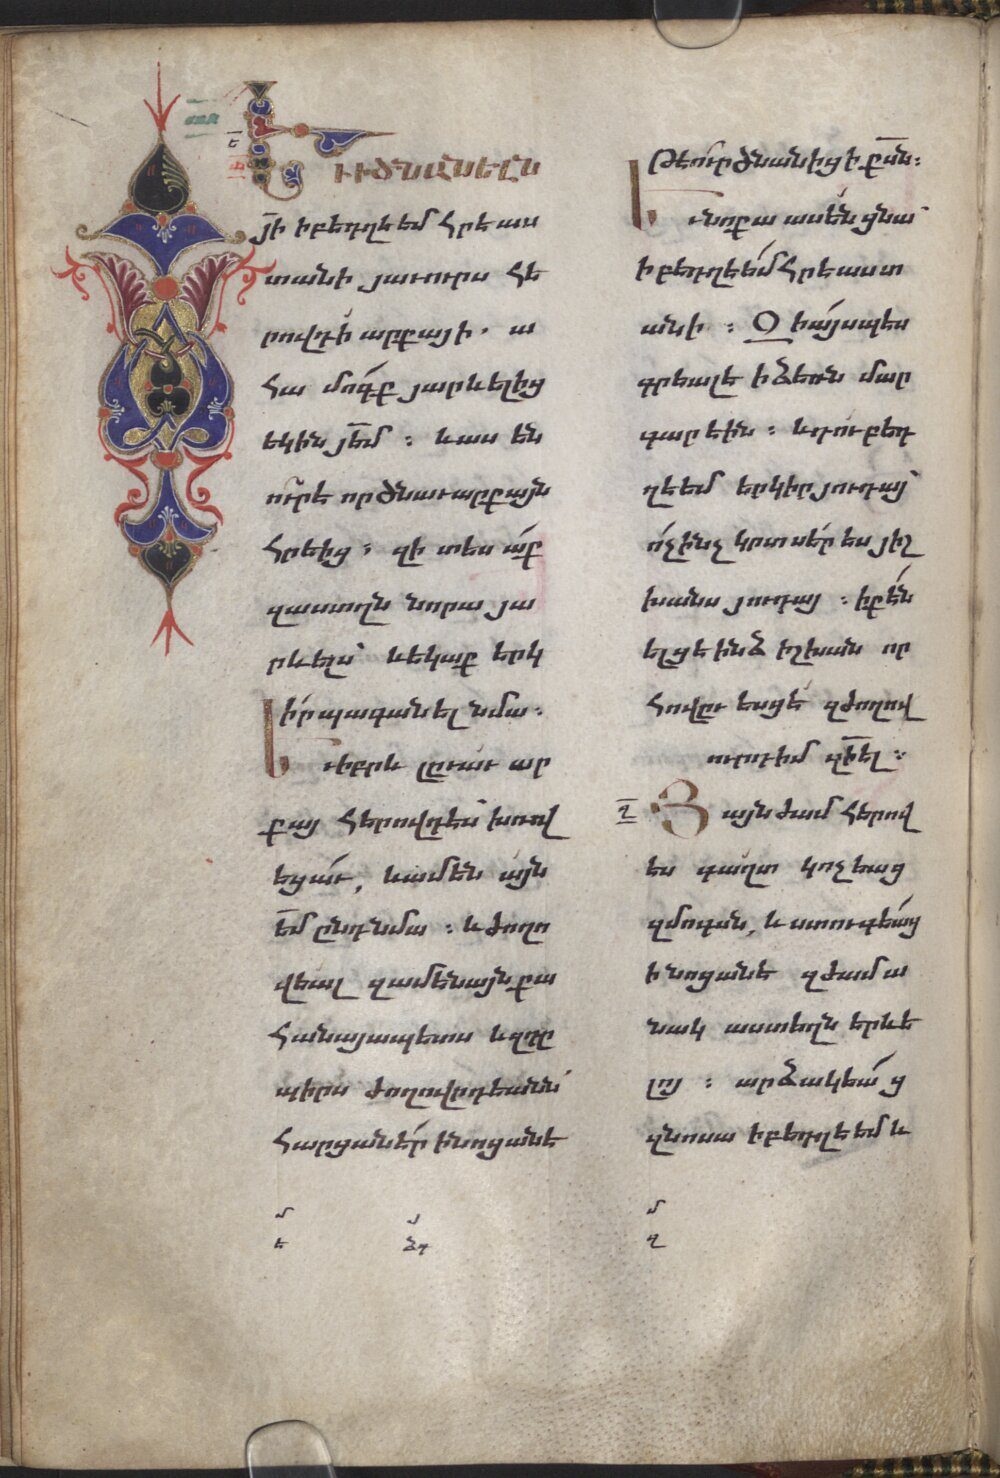 Ե ՒՒԾՆԱՆԵԼԸՆ
յի ի բեդղեեմ հրեաս
տանի յաւուրս հե
րովդի արքայի . ա
հա մոգք յարևելից
եկին յե̅մ : և աս են
ո՞ւր է որ ծնաւ արքայն
հրեից : զի տես աք
զաստղն նորա յա
րևելս՝ և եկաք երկ
իր պագանել նմա :
Եւ իբրև լըւաւ ար
քայ հերովդես՝ խռով
եցաւ, և ամեն այն
ե̅մ ընդ նմա : և ժողո
վեալ զամենայն քա
հանայապետս և զդը
պիրս ժողովըրդեանն՝
հարցաներ ի նոցանե
Թե ո՞ւր ծնանիցի ք̅սն :
Եւ նոքա ասեն ցնա՝
ի բեդղեեմ հրեաստ
անի : Զի այսպես
գրեալ է ի ձեռն մար
գարեին : և դու բեդ
ղեեմ երկիր յուդայ՝
ոչինչ կրտսեր ես յիշ
խանս յուդայ : ի քեն
ելցե ինձ իշխան որ
հովըւ եսցե զժողով
ուրդ իմ զի̅ել :
Զ Յայնժամ հերով
ես գաղտ կոչեաց
զմոգսն, և ստուգեաց
ի նոցանե զժամ ա
նակ աստեղն երևե
լոյ : արձակեաց
զնոսա ի բեդղեեմ և